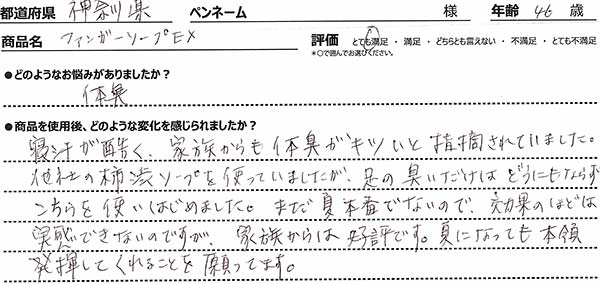 都道府県 神奈川県 ペンネーム 様 年齢 46 歳
商品名 ファンガーソープEX 評価 とても満足 ・ 満足 ・ どちらとも言えない ・ 不満足 ・ とても不満足
*○で囲んでお選びください。
●どのようなお悩みがありましたか?
体臭
●商品を使用後、どのような変化を感じられましたか?
寝汗が酷く、家族からも体臭がキツいと指摘されていました。
他社の柿渋ソープを使っていましたが、足の臭いだけはどうにもならず
こちらを使いはじめました。まだ夏本番でないので、効果のほどは
実感できないのですが、家族からは好評です。夏になっても本領
発揮してくれることを願ってます。